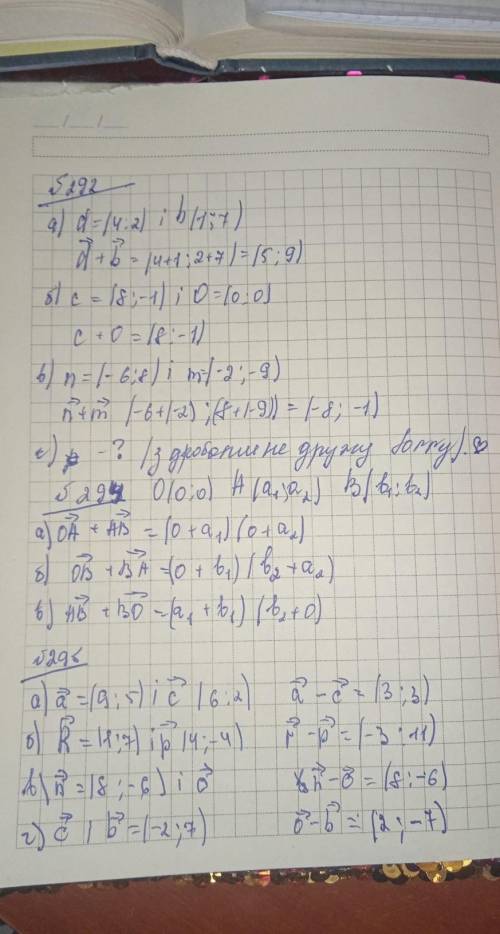 №292
а) a⃗=(4;2) і b(1;7)
a⃗+b⃗=(4+1;2+7)=(5;9)
б) c=(8;-1) і O=(0;0)
c+0=(8;-1)
в) n=(-6;8) і m=(-2;-9)
n⃗+m⃗ (-6+(-2);(8+(-9))=(-8;-1)
г) p -? (з дробами не дружу
№294 O(0;0) A(a₁;a₂) B(b₁;b₂)
а) OA⃗+AB⃗=(0+a₁)(0+a₂)
б) OB⃗+BA⃗=(0+b₁)(b₂+a₂)
в) AB⃗+BO⃗=(a₁+b₁)(b₂+0)
№296
а) a⃗=(9;5) і c⃗(6;2) a⃗-c⃗=(3;3)
б) k⃗=(1;7) і p⃗(4;-4) r⃗-p⃗=(-3;11)
в) n⃗=(8;-6) і o⃗ n⃗-o⃗=(8;-6)
г) o⃗ і b⃗=(-2;7) o⃗-b⃗=(2;-7)